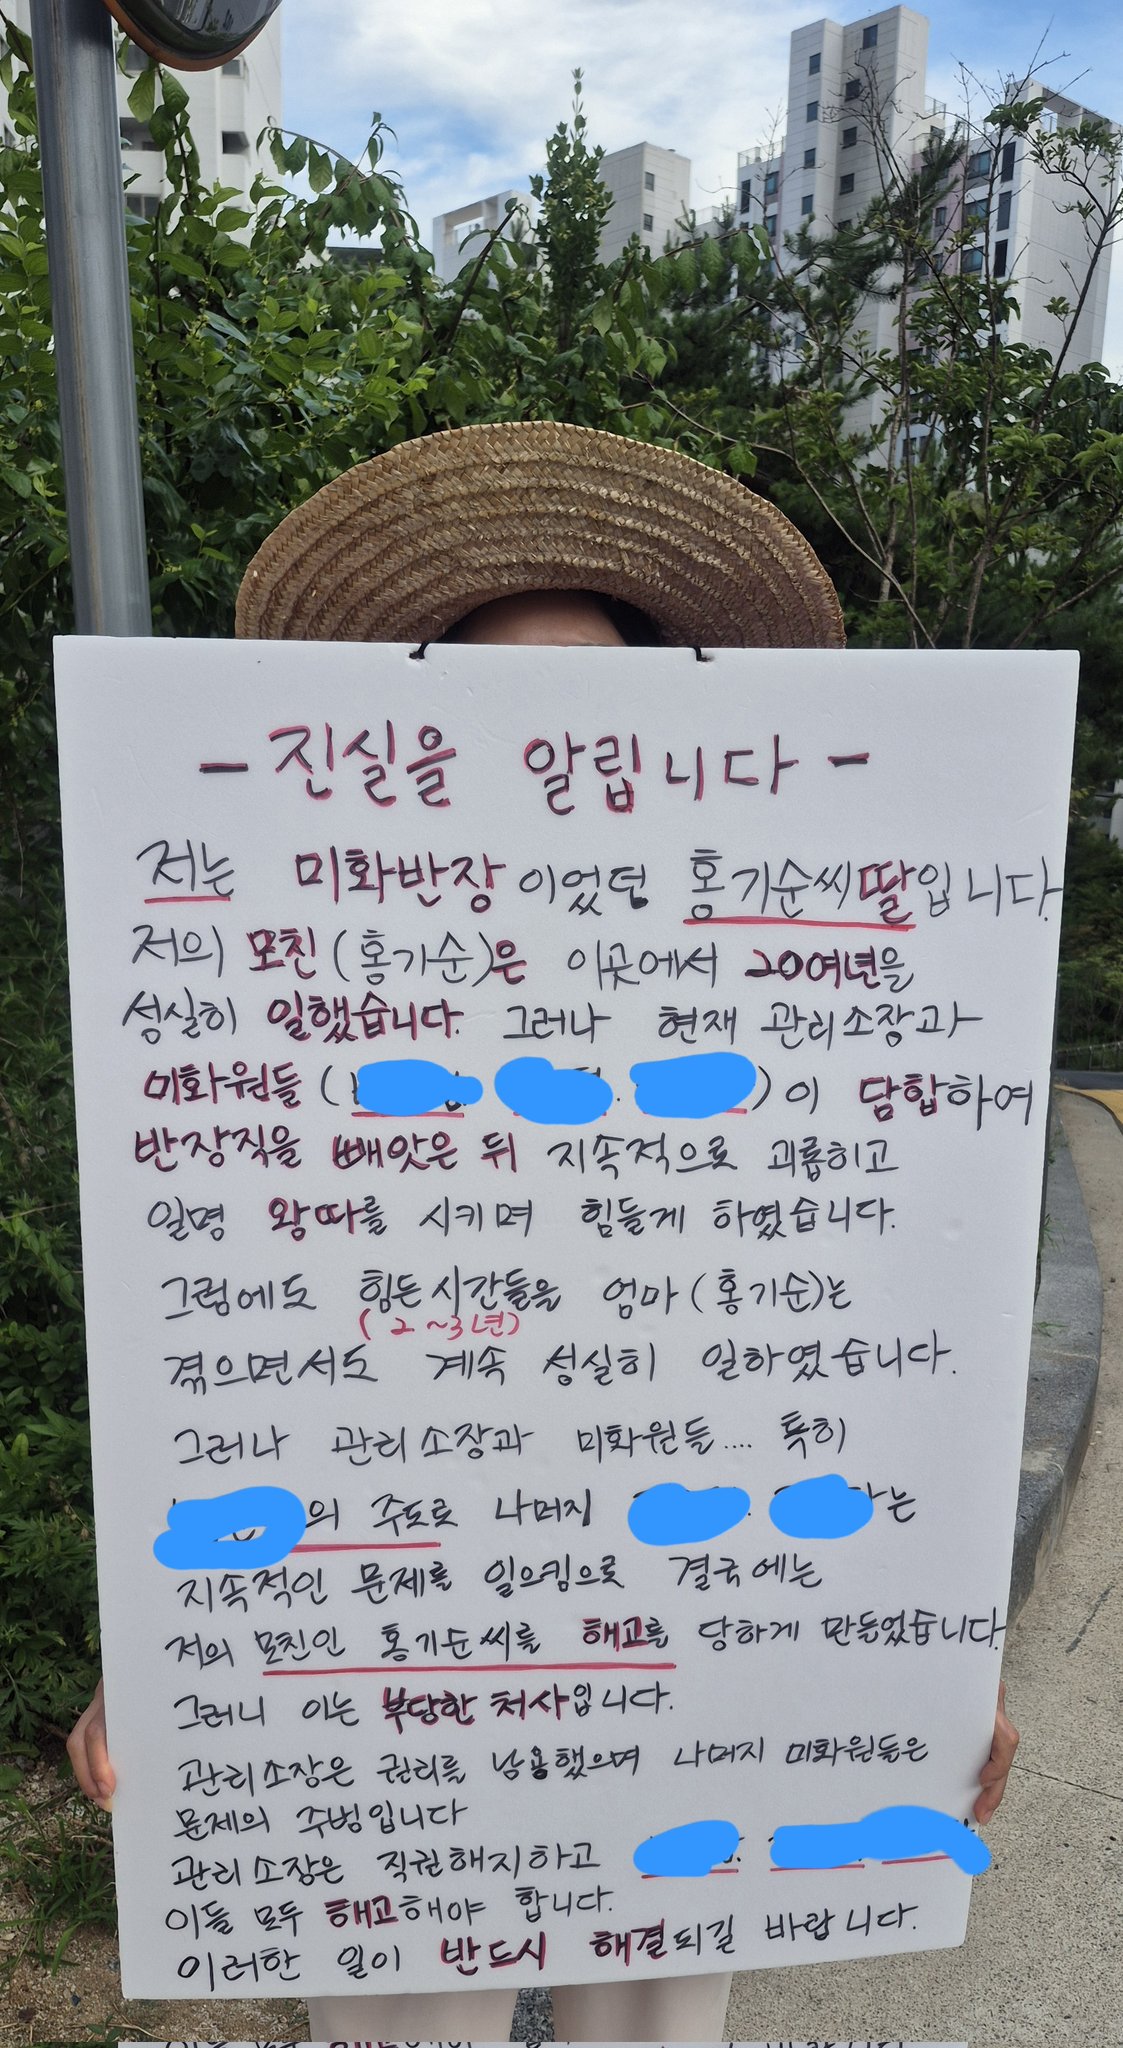 - 진실을 알립니다 -
저는 미화반장이었던 홍기순씨딸입니다.
저의 모친(홍기순)은 이곳에서 20여년을
성실히 일했습니다. 그러나 현재 관리소장과
미화원들( )이 담합하여
반장직을 빼앗은 뒤 지속적으로 괴롭히고
일명 왕따를 시키며 힘들게 하였습니다.
그럼에도 힘든시간들을 엄마(홍기순)는
(2~3년)
겪으면서도 계속 성실히 일하였습니다.
그러나 관리소장과 미화원들.... 특히
의 주도로 나머지 는
지속적인 문제를 일으킴으로 결국에는
저의 모친인 홍기순씨를 해고를 당하게 만들었습니다.
그러니 이는 부당한 처사입니다.
관리소장은 권리를 남용했으며 나머지 미화원들은
문제의 주범입니다
관리소장은 직권해지하고
이들 모두 해고해야 합니다.
이러한 일이 반드시 해결되길 바랍니다.